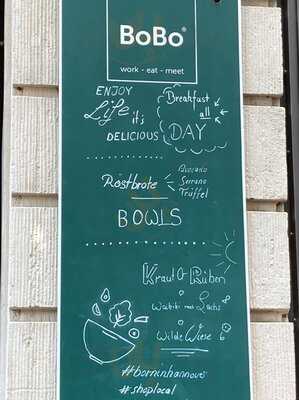 BoBo®
work - eat - meet
ENJOY
Life it's
DELICIOUS
Breakfast
all
DAY
Röstbrote
Avocado
Serrano
Trüffel
BOWLS
Kraut & Rüben
Wakiki mit Lachs
Wilde Wiese
#borninhannover
#shoplocal